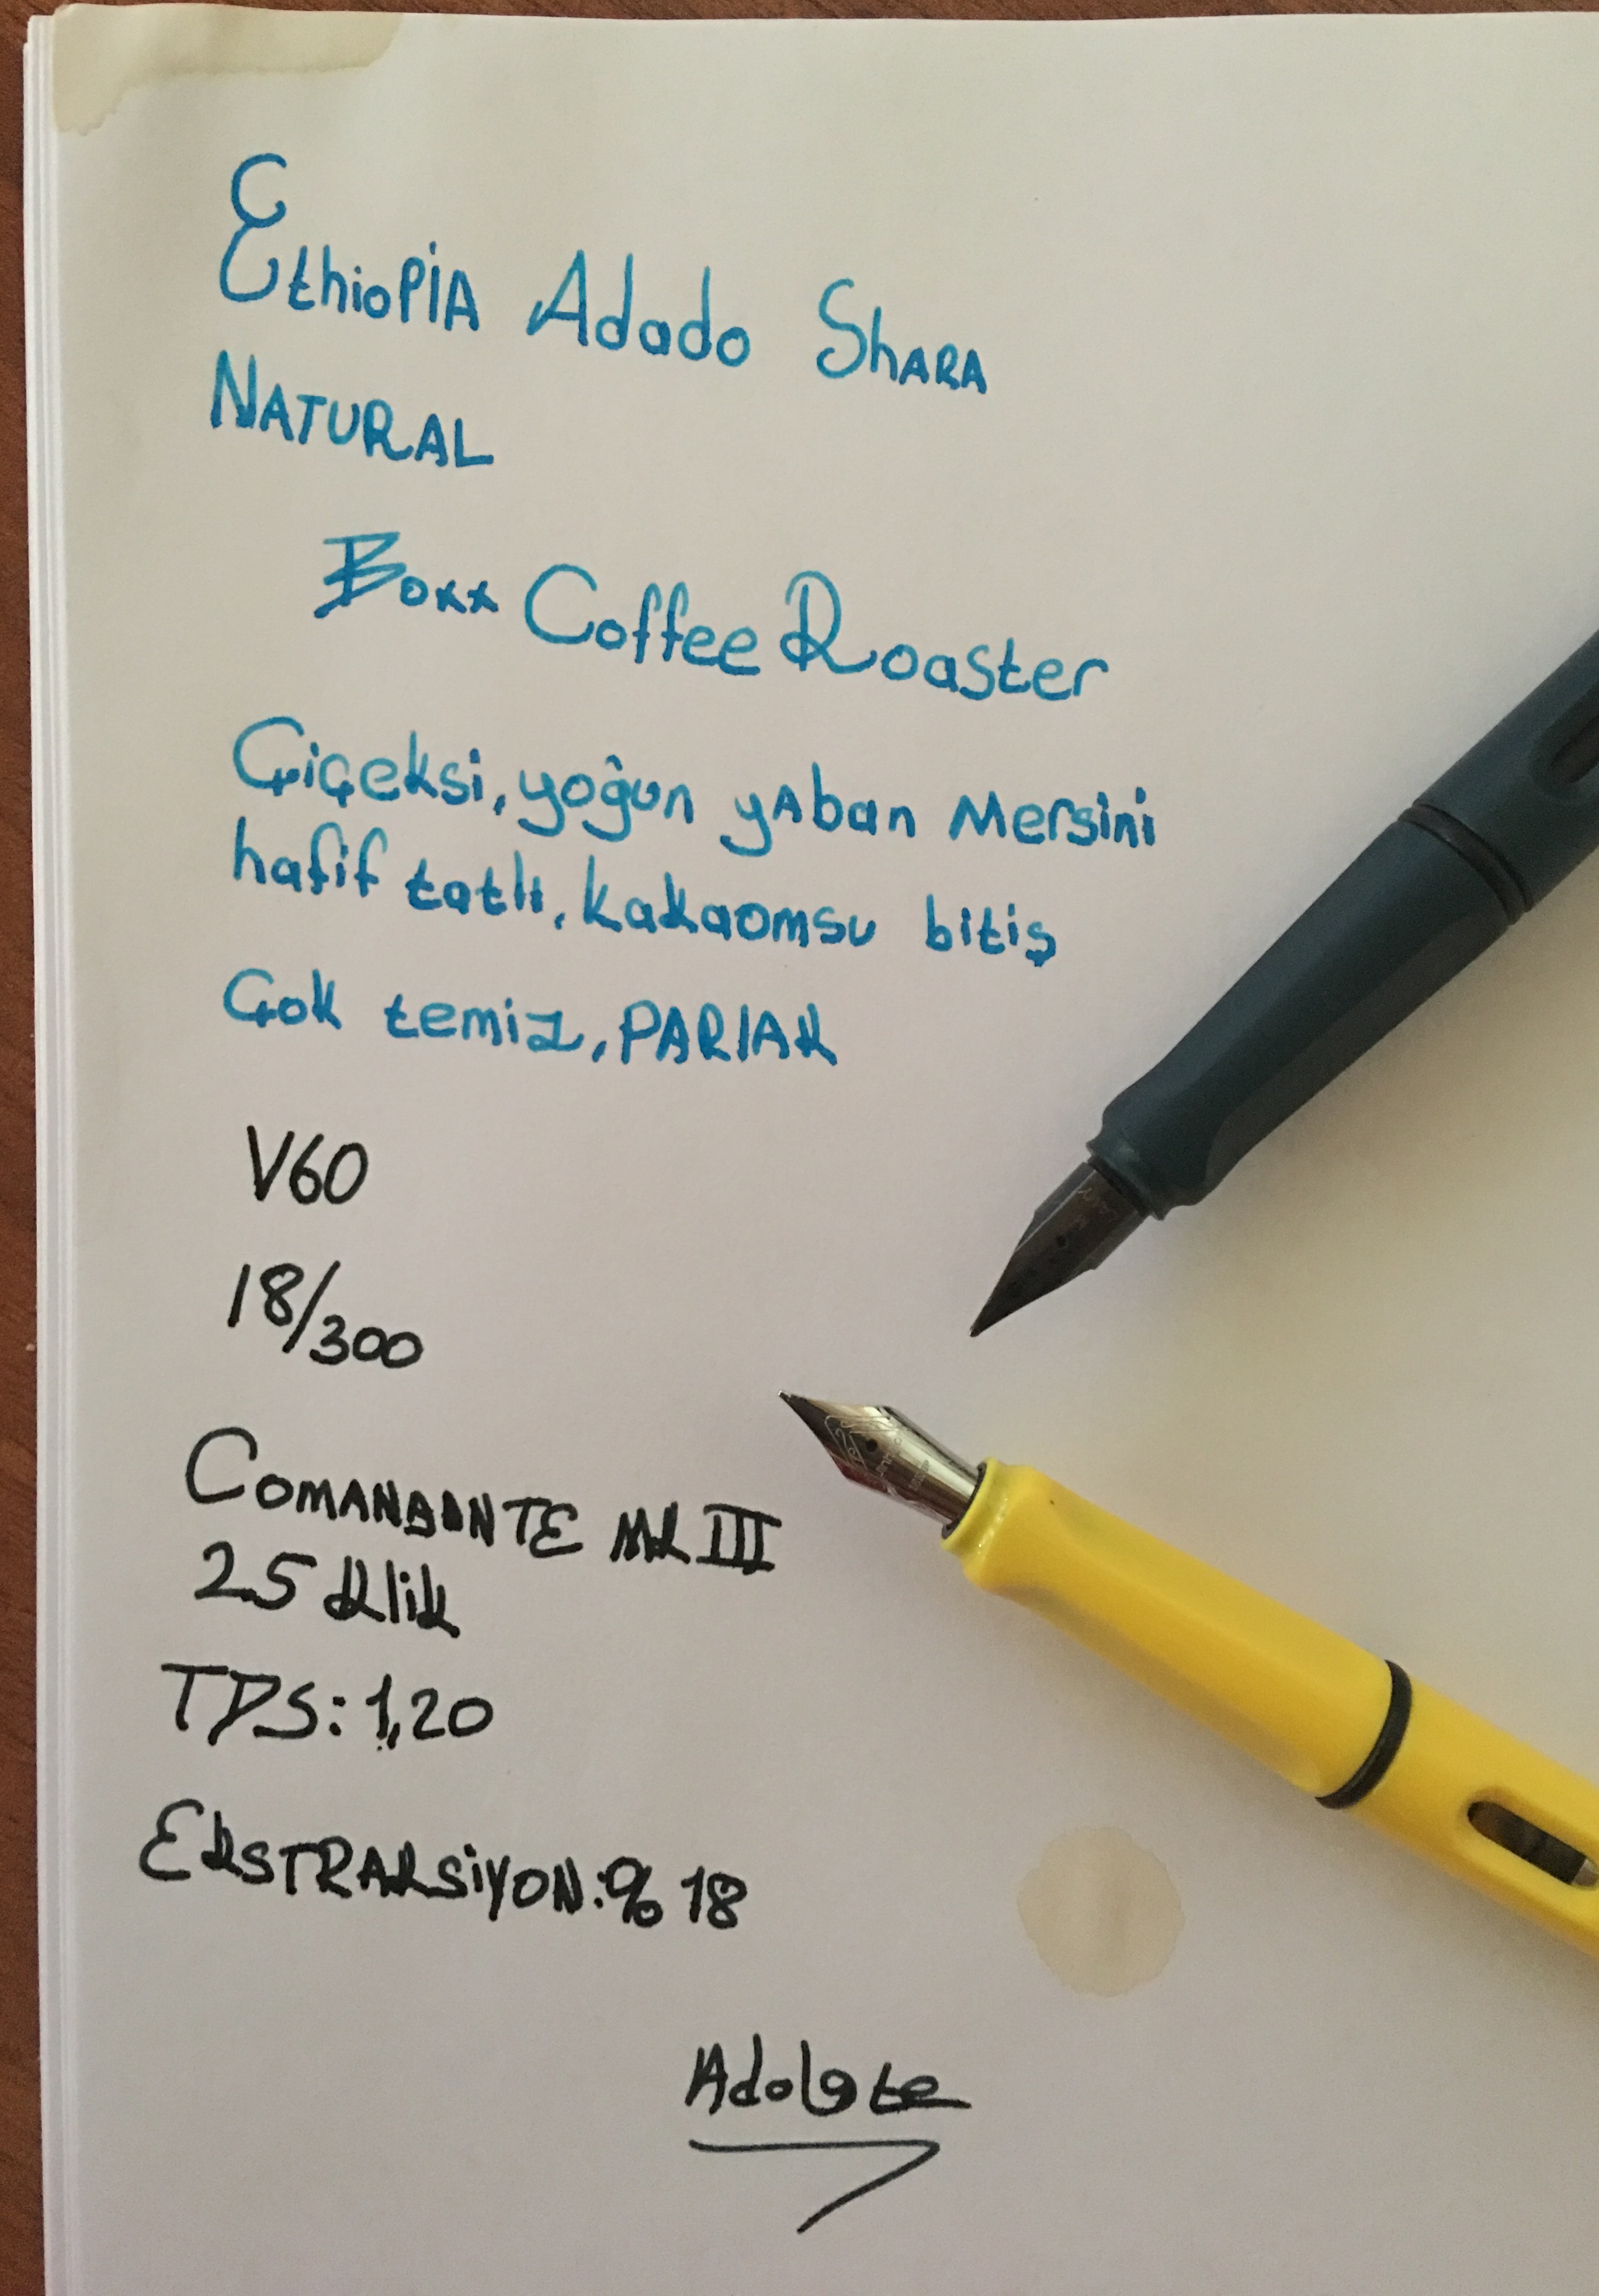 EthiopiA Adado ShARA
NATURAL
Boxx Coffee Roaster
Çiçeksi, yoğun yAban Mersini
hafif tatlı, kakaomsu bitiş
Çok temiz, PARlAk
V60
18/300
COMANDANTE MK III
25 klik
TDS: 1,20
EKSTRAKSiYON: % 18